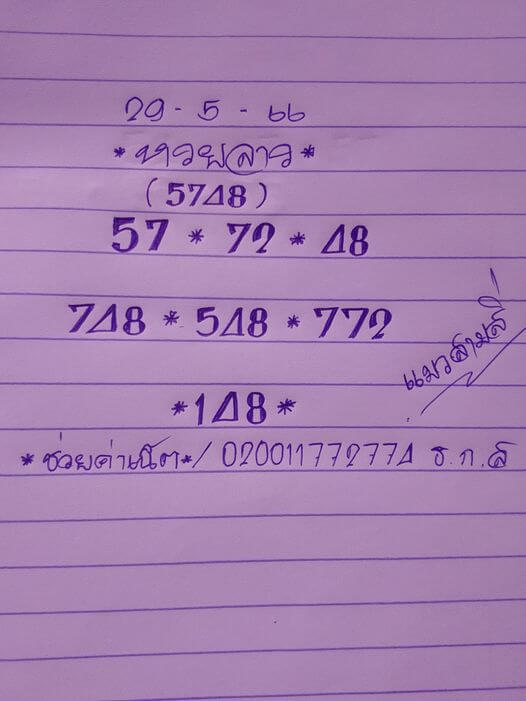 29 - 5 - 66
*หวยลาว*
(5748)
57 * 72 * 48
748 * 548 * 772
แมวสามสี
*148*
*ช่วยค่าเน็ต*/ 020011772774 ธ.ก.ส